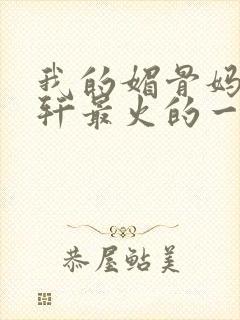 我的媚骨妈
轩最火的一
恭屋鲇美